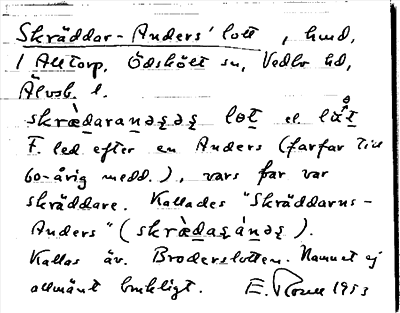 Skräddar-Anders' lott, hmd,
1 Alltorp, Ödskölt sn, Vedbo hd,
Älvsb. l.
skræ̀daranəʂəʂ lɵt el. lɑ̊t
F. led efter en Anders (farfar till
60-årig medd.), vars far var
skräddare. Kallades "Skräddarns-
Anders" (skræ̀daʂánəʂ).
Kallas äv. Broderslotten. Namnet ej
allmänt brukligt. E. Rosell 1953